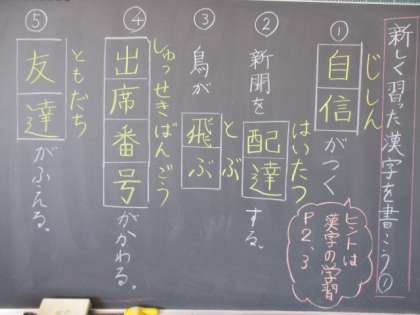 新しく習った漢字を書こう①
① 自信がつく
じしん
ヒントは
漢字の学習
P2、3
② 新聞を配達する。
はいたつ
③ 鳥が飛ぶ
とぶ
④ 出席番号がかわる。
しゅっせきばんごう
⑤ 友達がふえる。
ともだち